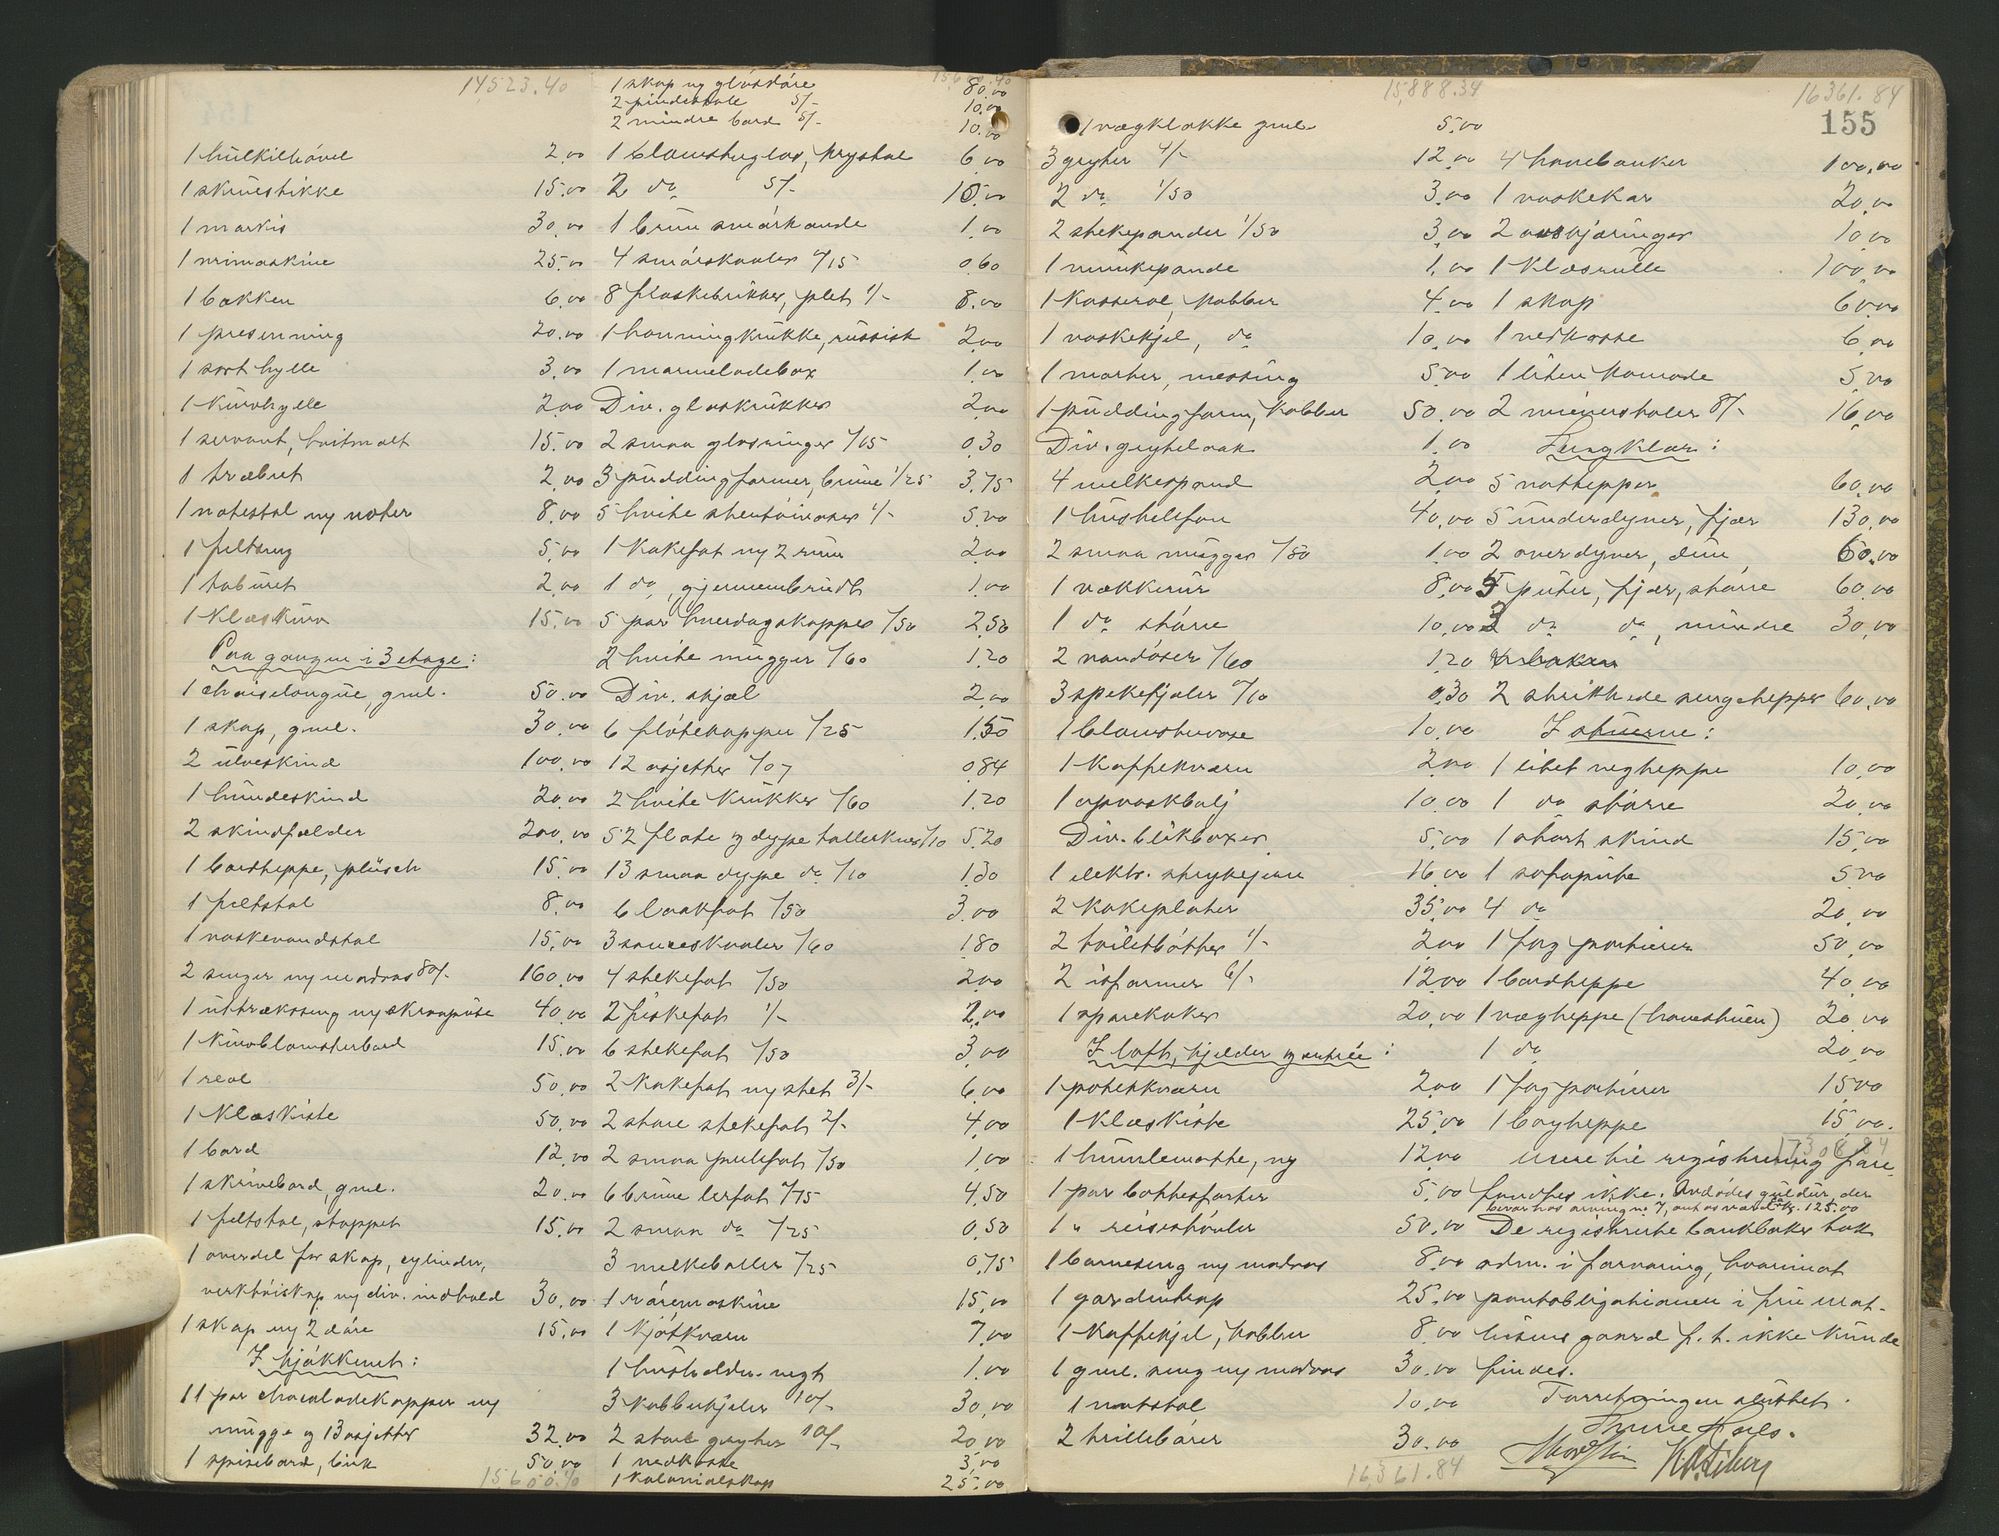 14,523.40
1 hulkilhövel 2.00
1 skruestikke 15.00
1 markis 30.00
1 25.00
1 bakken 6.00
1 presenning 20.00
1 sort hylle 3.00
1 kurvhylle 2.00
1 servant, hvitmalt 15.00
1 træbret 2.00
1 notestol m/ noter 8.00
1 feltseng 5.00
1 taburet 2.00
1 klæskurv 15.00
Paa gangen i 3 etage:
1 chaiselongue, gml. 50.00
1 skap, gml. 30.00
2 ulveskind 100.00
1 hundeskind 20.00
2 skindfælder 200.00
1 bordteppe, plüsch 15.00
1 feltstol 8.00
1 vaskevandstol 15.00
2 senger m/ madras 80/- 160.00
1 uttræksseng m/ skraapute 40.00
1 kurvblomsterbord 15.00
1 reol 50.00
1 klæskiste 50.00
1 bord 12.00
1 skrivebord, gml. 20.00
1 feltstol, stoppet 15.00
1 overdel for skap, cylinder,
verktöiskap m/ div. indhold 30.00
1 skap m/ 2 döre 15.00
I kjökkenet:
11 par chocoladekopper m/
mugge og 13 asjetter 32.00
1 spisebord, birk 50.00
15,600.40
1 skap m/ glasdöre 80.00
2 pindestole 5/- 10.00
2 mindre bord 5/- 10.00
1 blomsterglas, krystal 6.00
2 do 5/- 10.00
1 brun smörkande 1.00
4 smörskaaler °/15 0.60
8 flaskebrikker, plet 1/- 8.00
1 honningkrukke, russisk 2.00
1 marmeladebox 1.00
Div. glaskrukker 2.00
2 smaa glasringer °/15 0.30
3 puddingformer, brune 1/25 3.75
5 hvite stentöivaser 1/- 5.00
1 kakefat m/ 2 rum 2.00
1 do, gjennembrudt 1.00
5 par hverdagskopper °/50 2.50
2 hvite mugger °/60 1.20
Div. skjæl 2.00
6 flötekopper °/25 1.50
12 asjetter °/07 0.84
2 hvite krukker °/60 1.20
52 flate og dype tallerkner °/10 5.20
13 smaa dype do °/10 1.30
6 laakfat °/50 3.00
3 sauceskaaler °/60 1.80
4 stekefat °/50 2.00
2 fiskefat 1/- 2.00
6 stekefat °/50 3.00
2 kakefat m/ stet 3/- 6.00
2 store stekefat 2/- 4.00
2 smaa fat °/50 1.00
6 brune lerfat °/75 4.50
2 smaa do °/25 0.50
3 melkeboller °/25 0.75
1 röremaskine 15.00
1 kjötkværn 7.00
1 husholdn. vegt 1.00
3 kobberkjeler 10/- 30.00
2 store gryter 10/- 20.00
1 vedkasse 3.00
1 kolonialskap 25.00
15,888.34
1 vægklokke gml. 5.00
3 gryter 4/- 12.00
2 do 1/50 3.00
2 stekepander 1/50 3.00
1 munkepande 1.00
1 kasserol, kobber 4.00
1 vaskekjel, do 10.00
1 morter, messing 5.00
1 puddingform, kobber 50.00
Div. grytelaak 1.00
4 melkespand 2.00
1 hustelefon 40.00
2 smaa mugger °/50 1.00
1 vækkerur 8.00
1 do större 10.00
2 vandöser °/60 1.20
3 spekefjeler °/10 0.30
1 blomstervase 10.00
1 kaffekværn 2.00
1 opvaskbalj 10.00
Div. blikboxer 5.00
1 elektr. strykejern 16.00
2 kokeplater 35.00
2 toiletbötter 1/- 2.00
2 isformer 6/- 12.00
1 sparekoker 20.00
I loft, kjelder og entrée:
1 potetkværn 2.00
1 klæskiste 25.00
1 humlematte, ny 12.00
1 par bottesforter 5.00
1 " reisestövler 50.00
1 barneseng m/ madras 8.00
1 gardintrap 25.00
1 kaffekjel, kobber 8.00
1 gml. seng m/ madras 30.00
1 natstol 10.00
2 trillebörer 30.00
16,361.84
16361.84
155
4 havebænker 100.00
1 vaskekar 20.00
2 10.00
1 klæsrulle 100.00
1 skap 60.00
1 vedkasse 6.00
1 liten komode 5.00
2 wienerstoler 8/- 16.00
Sengklær:
5 vattepper 60.00
5 underdyner, fjær 130.00
2 overdyner, dun 60.00
5 puter, fjær, större 60.00
3 do do, mindre 30.00
2 strikkede sengetepper 60.00
I stuerne:
1 litet vegteppe 10.00
1 do större 20.00
1 sort skind 15.00
1 sofapute 5.00
4 do 20.00
1 fag portierer 50.00
1 bordteppe 40.00
1 vægteppe (havestuen) 20.00
1 do 20.00
1 fag portierer 15.00
1 teppe 15.00.
17308.84
Mere til registrering fore
fandtes ikke. Avdödes guldur, der
beror hos arving nr. 7, antas værd kr. 125.00
De registrerte bankböker tok
adm. i forvaring, hvorimot
pantobligationen i frue Mat-
hisens gaard p. t. ikke kunde
findes.
Forretningen sluttet.